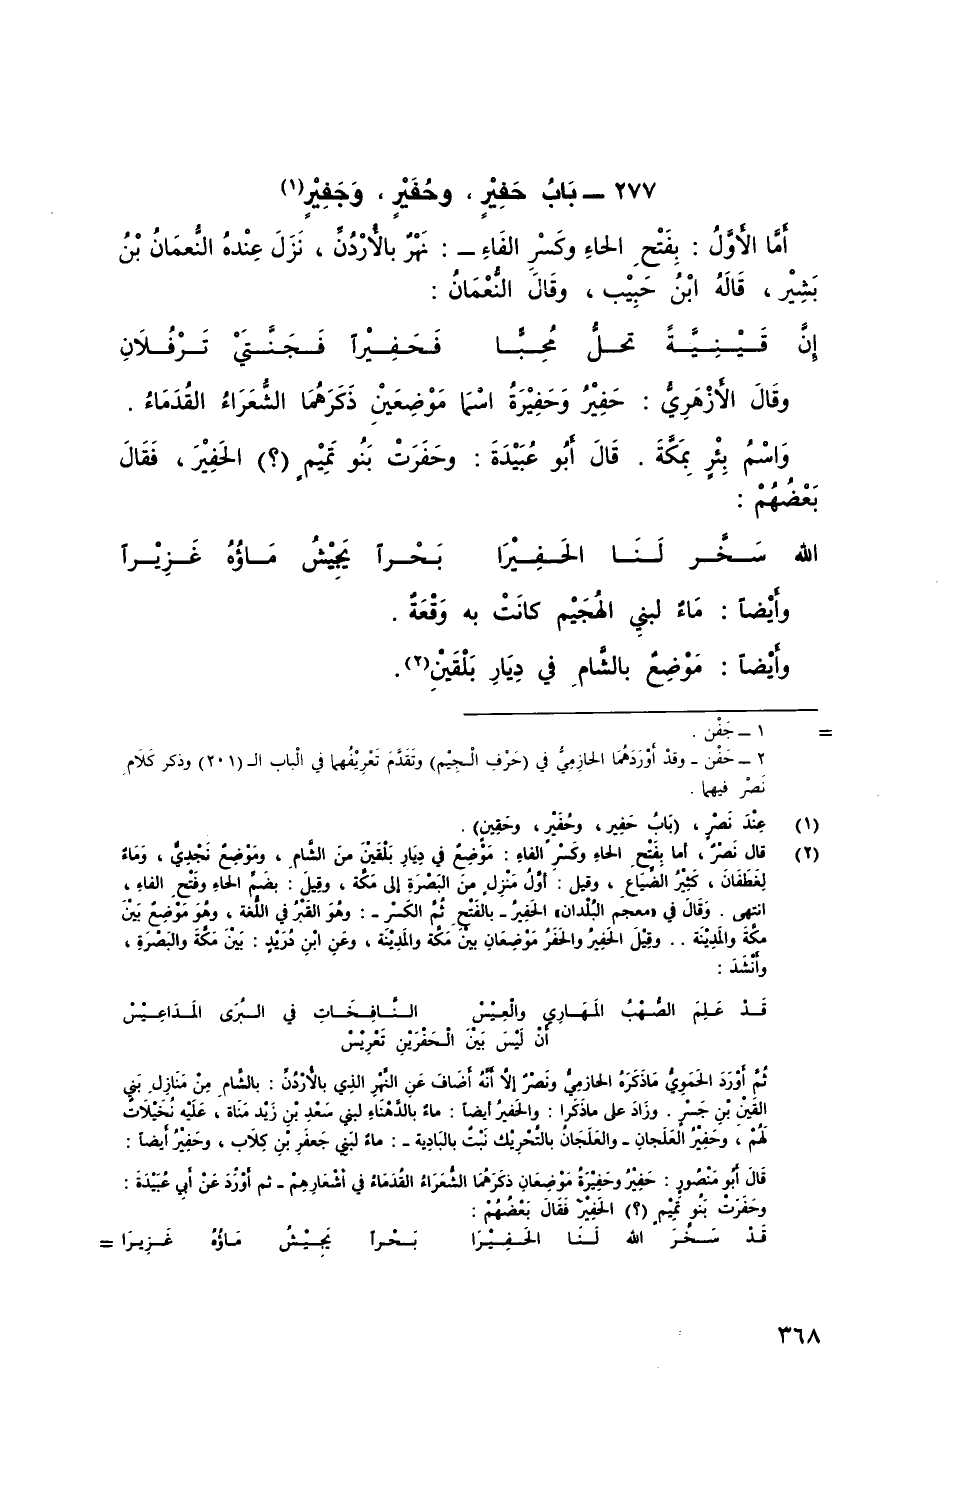 ٢٧٧ ــ بَابُ حَفِيْرٍ ، وحُفَيْرٍ ، وَجَفِيْرٍ(١)
أَمَّا الأَوَّلُ : بِفَتْحِ الحاءِ وكَسْرِ الفَاءِ ــ : نَهْرٌ بالأُرْدُنِّ ، نَزَلَ عِنْدهُ النُّعمَانُ بْنُ
بَشِيْر ، قَالَهُ ابْنُ حَبِيْب ، وقَالَ النُّعْمَانُ :
إِنَّ قَيْنِيَّةً تحلُّ مُحِبًّا فَحَفِيْراً فَجَنَّتَيْ تَرْفُلَانِ
وقَالَ الأَزْهَرِيُّ : حَفِيْرُ وَحَفِيْرَةُ اسْمَا مَوْضِعَيْنِ ذَكَرَهُمَا الشُّعَرَاءُ القُدَمَاءُ .
وَاسْمُ بِئْرٍ بِمَكَّةَ . قَالَ أَبُو عُبَيْدَةَ : وحَفَرَتْ بَنُو تَمِيْمٍ (؟) الحَفِيْرَ ، فَقَالَ
بَعْضُهُمْ :
الله سَخَّر لَنَا الحَفِيْرَا بَحْراً يَجِيْشُ مَاؤُهُ غَزِيْراً
وأَيْضاً : مَاءٌ لبنِي الهُجَيْم كانَتْ به وَقْعَةٌ .
وأَيْضاً : مَوْضِعٌ بالشَّامِ في دِيَارِ بَلْقَيْنِ(٢).
= ١ ــ جَفْن .
٢ ــ حَفْن ـ وقدْ أَوْرَدَهُمَا الحازِمِيُّ في (حَرْفِ الْجِيْم) وتَقَدَّمَ تَعْرِيْفُهما في الْباب الـ (٢٠١) وذكر كَلَامِ
نَصْر فيهما .
(١) عِنْدَ نَصْرٍ ، (بَابُ حَفِير ، وحُفَيْرٍ ، وحَفِين) .
(٢) قال نَصْرٌ ، أما بِفَتْحِ الحاءِ وكَسْرِ الفاءِ : مَوْضِعٌ في دِيَارِ بَلْقَيْنَ منَ الشَّامِ ، ومَوْضِعٌ نَجْدِيٌّ ، وَمَاءٌ
لِغَطَفَانَ ، كَثِيْرُ الضِّيَاعِ ، وقيل : أوَّلُ مَنْزِلٍ منَ البَصْرَةِ إلى مَكَّة ، وقِيلَ : بضَمِّ الحاءِ وفَتْحِ الفاءِ ،
انتهى . وَقَالَ في «معجم البُلْدان» الحَفِيرُ ـ بالفَتْحِ ثُمَّ الكَسْرِ ـ : وهُوَ القَبْرُ في اللُّغة ، وهُوَ مَوْضِعٌ بَيْنَ
مكَّةَ والمَدِيْنَة .. وقِيْلَ الحَفِيرُ والحَفَرُ مَوْضِعَانِ بينَ مَكَّة والمَدِيْنة ، وعَنِ ابْنِ دُرَيْدٍ : بَيْنَ مَكَّةَ والبَصْرَةِ ،
وأَنْشَدَ :
قَدْ عَلِمَ الصُّهْبُ المَهَارِي والْعِيْسْ النَّافِخَاتِ في البُرَى المَدَاعِيْسْ
أَنْ لَيْسَ بَيْنَ الْحَفْرَيْنِ تَعْرِيْسْ
ثُمَّ أَوْرَدَ الحَمَوِيُّ مَاذَكَرَهُ الحازِميُّ ونَصْرٌ إلَّا أَنَّهُ أضَافَ عَنِ النَّهْرِ الذي بالأرْدُنِّ : بالشَّامِ مِنْ مَنَازِلِ بَنِي
القَيْنِ بْنِ جَسْرٍ . وزَادَ على ماذَكَرا : والحَفيرُ أيضاً : ماءٌ بالدَّهْنَاءِ لبني سَعْدِ بْنِ زَيْد مَنَاةَ ، عَلَيْه نُخَيْلَاتٌ
لَهُمْ ، وحَفِيْرُ العَلَجانِ ـ والعَلَجَانُ بالتَّحْرِيْك نَبْتٌ بالبَادِية ـ : ماءٌ لبَنِي جَعفرِ بْنِ كِلَاب ، وحَفِيْرُ أيضاً :
قَالَ أَبُو مَنْصُورٍ : حَفِيْرُ وحَفِيْرَةُ مَوْضِعَان ذكَرَهُما الشُّعَرَاءُ القُدَمَاءُ في أشْعَارِهِمْ ـ ثم أوْرَدَ عَنْ أبي عُبَيْدَةَ :
وحَفَرَتْ بَنُو تَمِيْمٍ (؟) الحَفِيْرَ فَقَالَ بَعْضُهُمْ :
قَدْ سَخَّرَ الله لَنَا الحَفِيْرَا بَحْراً يَجِيْشُ مَاؤُهُ غَزِيرَا =
٣٦٨